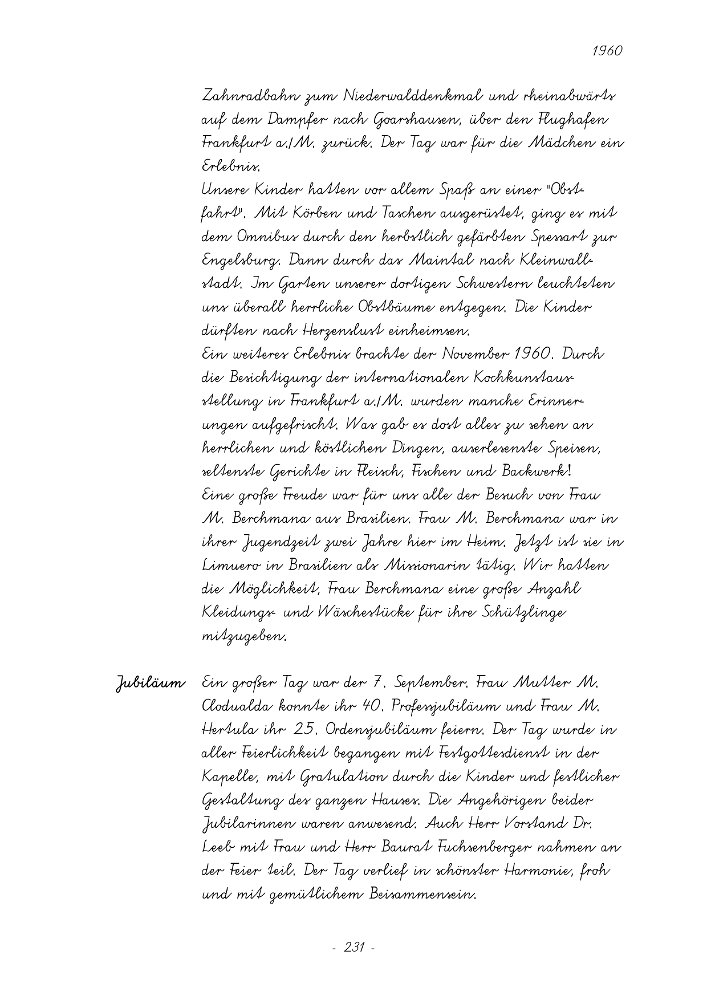 1960
Zahnradbahn zum Niederwalddenkmal und rheinabwärts
auf dem Dampfer nach Goarshausen, über den Flughafen
Frankfurt a./M. zurück. Der Tag war für die Mädchen ein
Erlebnis.
Unsere Kinder hatten vor allem Spaß an einer "Obst-
fahrt". Mit Körben und Taschen ausgerüstet, ging es mit
dem Omnibus durch den herbstlich gefärbten Spessart zur
Engelsburg. Dann durch das Maintal nach Kleinwall-
stadt. Im Garten unserer dortigen Schwestern leuchteten
uns überall herrliche Obstbäume entgegen. Die Kinder
dürften nach Herzenslust einheimsen.
Ein weiteres Erlebnis brachte der November 1960. Durch
die Besichtigung der internationalen Kochkunstaus-
stellung in Frankfurt a./M. wurden manche Erinner-
ungen aufgefrischt. Was gab es dost alles zu sehen an
herrlichen und köstlichen Dingen, auserlesenste Speisen,
seltenste Gerichte in Fleisch, Fischen und Backwerk!
Eine große Freude war für uns alle der Besuch von Frau
M. Berchmana aus Brasilien. Frau M. Berchmana war in
ihrer Jugendzeit zwei Jahre hier im Heim. Jetzt ist sie in
Limuero in Brasilien als Missionarin tätig. Wir hatten
die Möglichkeit, Frau Berchmana eine große Anzahl
Kleidungs- und Wäschestücke für ihre Schützlinge
mitzugeben.
Jubiläum Ein großer Tag war der 7. September. Frau Mutter M.
Clodualda konnte ihr 40. Professjubiläum und Frau M.
Hertula ihr 25. Ordensjubiläum feiern. Der Tag wurde in
aller Feierlichkeit begangen mit Festgottesdienst in der
Kapelle, mit Gratulation durch die Kinder und festlicher
Gestaltung des ganzen Hauses. Die Angehörigen beider
Jubilarinnen waren anwesend. Auch Herr Vorstand Dr.
Leeb mit Frau und Herr Baurat Fuchsenberger nahmen an
der Feier teil. Der Tag verlief in schönster Harmonie, froh
und mit gemütlichem Beisammensein.
- 231 -